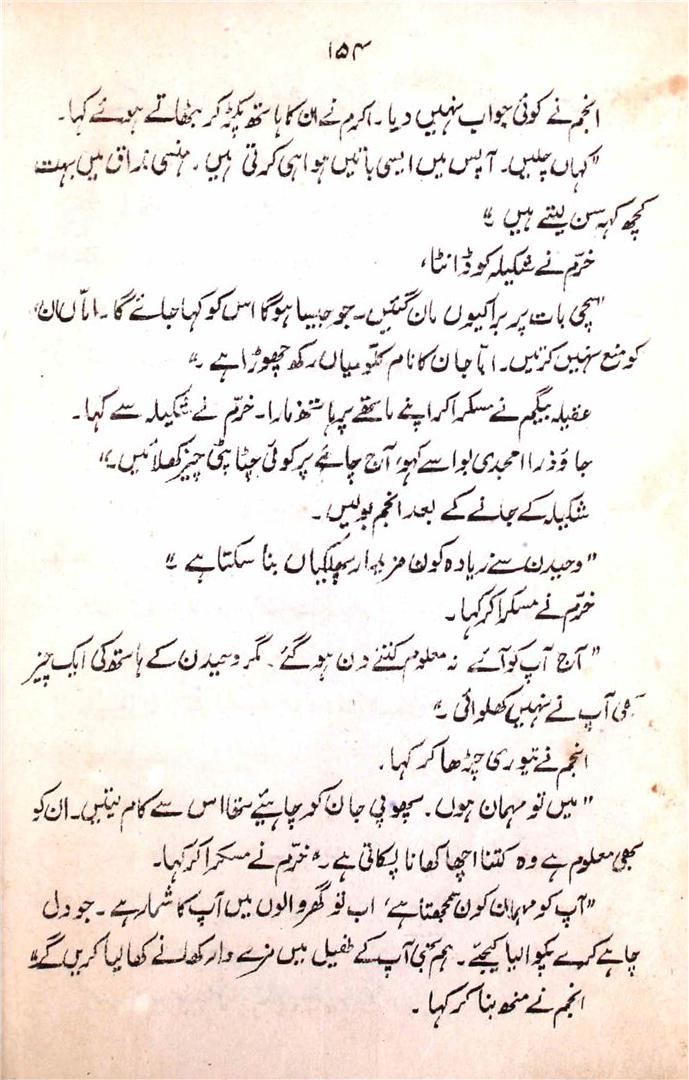 ۱۵۴
انجم نے کوئی جواب نہیں دیا۔ اکرم نے ان کا ہاتھ پکڑ کر بٹھاتے ہوئے کہا۔
"کہاں چلیں۔ آپس میں ایسی باتیں ہوا ہی کرتی ہیں۔ ہنسی مذاق میں بہت
کچھ کہہ سن لیتے ہیں"
خرّم نے شکیلہ کو ڈانٹا،
"سچی بات پر برا کیوں مان گئیں۔ جو جیسا ہوگا اس کو کہا جائے گا۔ امّاں ان
کو منع نہیں کرتیں۔ ابّا جان کا نام کلّو میاں رکھ چھوڑا ہے۔"
عقیلہ بیگم نے مسکرا کر اپنے ماتھے پر ہاتھ مارا۔ خرّم نے شکیلہ سے کہا۔
جاؤ ذرا امجدی بوا سے کہو، آج چائے پر کوئی چٹا پٹی چیز کھلائیں۔"
شکیلہ کے جانے کے بعد انجم بولیں۔
"وحیدن سے زیادہ کون مزیدار پھلکیاں بنا سکتا ہے"
خرّم نے مسکرا کر کہا۔
"آج آپ کو آئے نہ معلوم کتنے دن ہو گئے۔ مگر وحیدن کے ہاتھ کی ایک چیز
بھی آپ نے نہیں کھلوائی۔"
انجم نے تیوری چڑھا کر کہا۔
"میں تو مہمان ہوں۔ پھوپی جان کو چاہیئے تھا اس سے کام لیتیں۔ ان کو
بھی معلوم ہے وہ کتنا اچھا کھانا پکاتی ہے۔" خرّم نے مسکرا کر کہا۔
"آپ کو مہمان کون سمجھتا ہے، اب تو گھر والوں میں آپ کا شمار ہے۔ جو دل
چاہے کرے پکوا لیا کیجئے۔ ہم بھی آپ کے طفیل میں مزے دار کھانے کھا لیا کریں گے"
انجم نے منھ بنا کر کہا۔